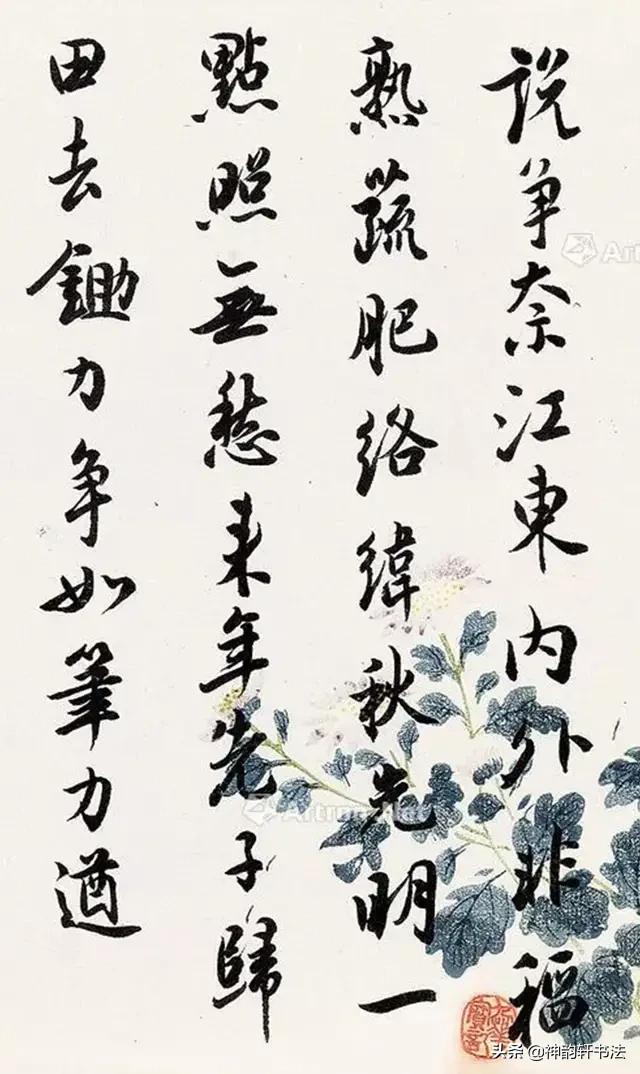 説争奈江東内外非稻
熟蔬肥絡緯秋光明一
點照無愁来年老子歸
田去鋤力争如筆力遒
头条 @神韵轩书法